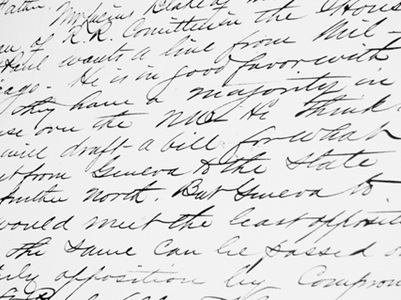 Father. Mr Lewis Blake of
of R.R. Committee in the House
Paul wants a line from Mil-
cago. He is in good favor with
they have a majority in
use over the He think
will draft a bill for what
from Geneva to the State
further north. But Geneva to
would meet the least oppositi
The same can be passed o
only opposition by Comprom